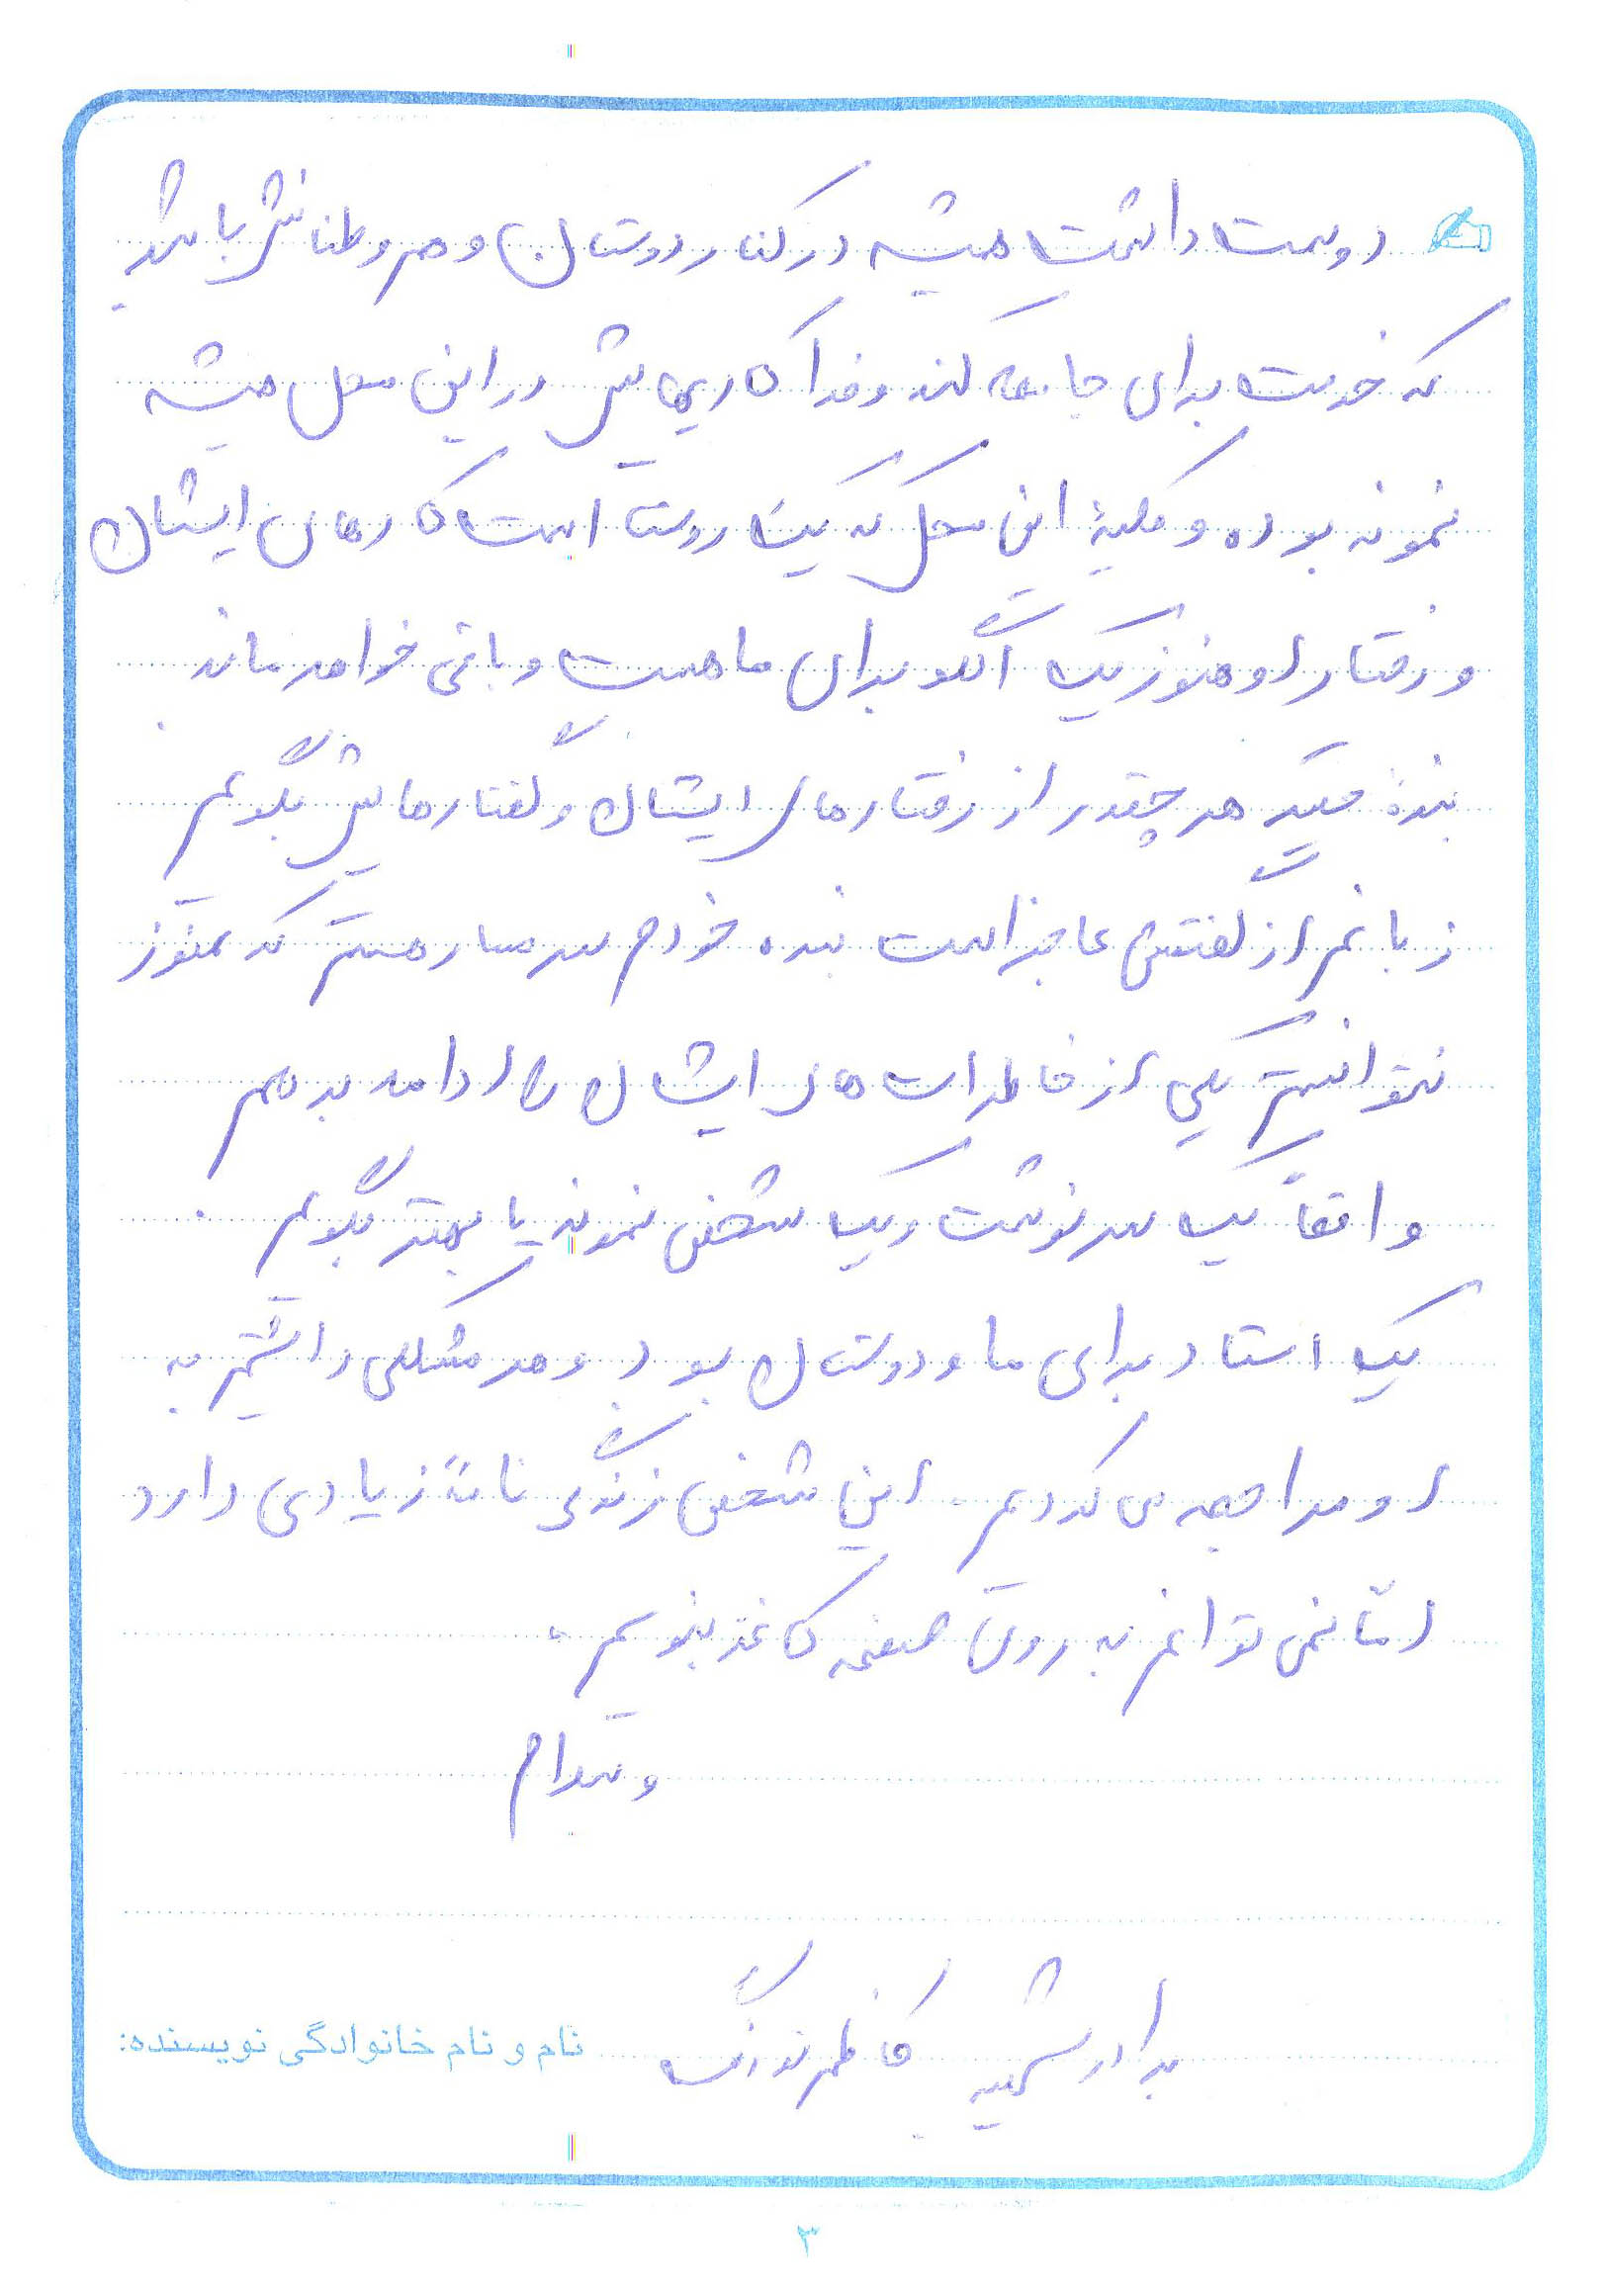 دوست داشت همیشه در کنار دوستان و هم وطنانش باشد
که خدمت برای جامعه کند و فداکاریهایش در این محل همیشه
نمونه بوده و کلیهٔ این محل که یک روستا است کارهای ایشان
و رفتار او هنوز یک الگو برای ما هست و باقی خواهد ماند.
بندهٔ حقیر هر چقدر از رفتارهای ایشان و گفتارهایش بگویم
زبانم از گفتنش عاجز است بنده خودم شرمسار هستم که هنوز
نتوانستم یکی از خاطرات های ایشان را ادامه بدهم
واقعاً یک سرنوشت و یک شخص نمونه یا بهتر بگویم.
یک استاد برای ما و دوستان بود و هر مشکلی داشتیم به
او مراجعه می کردیم. این شخص زندگی نامهٔ زیادی دارد
امّا نمی توانم به روی صفحه کاغذ بنویسم.
وسلام
نام و نام خانوادگی نویسنده: برادر شهید کاظم
۳